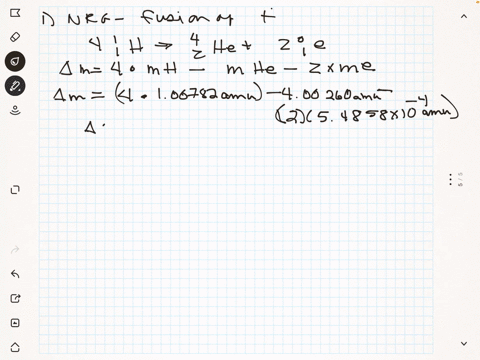 1) NRG - fusion of t
4 ¹₁H → ⁴₂He + 2 ⁰₁e
Δm = 4 • mH - mHe - 2 x me
Δm = (4 • 1.00782 amu) - 4.00260 amu -
(2)(5.4858 x 10⁻⁴ amu)
Δ